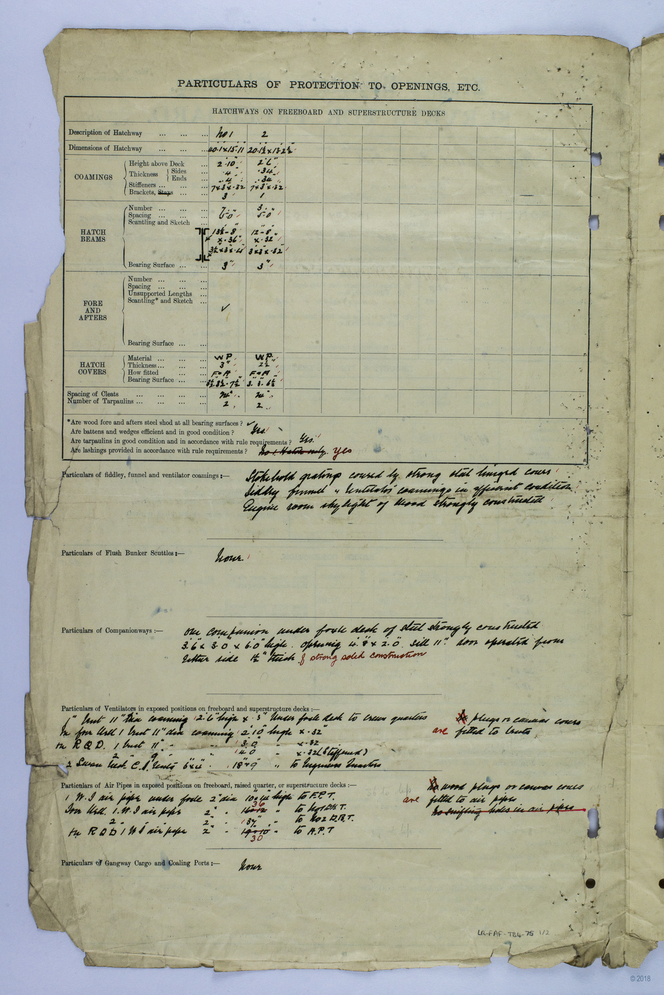 PARTICULARS OF PROTECTION TO OPENINGS, ETC.
HATCHWAYS ON FREEBOARD AND SUPERSTRUCTURE DECKS
Description of Hatchway ... ... ... No 1 2
Dimensions of Hatchway ... ... ...
COAMINGS
Height above Deck ... 2'.10" 2'.6"
Thickness { Sides ... .4 .34
Ends ... .4 .34
Stiffeners ... ... ... 7×3×.32 7×3×.32
Brackets, Stays ... 3 1
HATCH BEAMS
Number ... ... ... 7 3
Spacing ... ... ... 5'.0" 5'.0"
Scantling and Sketch
×.36" ×.32"
3×3×.32
Bearing Surface ... ... 3" 3"
FORE AND AFTERS
Number ... ... ...
Spacing ... ... ...
Unsupported Lengths ...
Scantling* and Sketch ... ✓
Bearing Surface ... ...
HATCH COVERS
Material ... ... ... W.P. W.P.
Thickness ... ... ... 3" 2½"
How fitted ... ... F&A F&A
Bearing Surface ... ...
Spacing of Cleats ... ... ... 24" 24"
Number of Tarpaulins ... ... ... 2 2
*Are wood fore and afters steel shod at all bearing surfaces? ✓
Are battens and wedges efficient and in good condition? Yes
Are tarpaulins in good condition and in accordance with rule requirements? Yes
Are lashings provided in accordance with rule requirements? No 1 Hatch only yes
Particulars of fiddley, funnel and ventilator coamings:— Stokehold gratings covered by strong steel hinged covers
fiddley funnel & ventilator coamings in efficient condition
Engine room skylight of wood strongly constructed
Particulars of Flush Bunker Scuttles:— None
Particulars of Companionways:— One companion under foc'le deck of steel strongly constructed
3.6 × 3.0 × 6.0 high. Opening 4.9 × 2.0 sill 11" door operated from
either side 1½" thick & strong solid construction
Particulars of Ventilators in exposed positions on freeboard and superstructure decks:—
1 Vent 11" dia coaming 2'.6" high × .3" under foc'le deck to crews quarters
In fore well 1 Vent 11" dia coaming 2'.10" high × .32"
On R.Q.D. 1 Vent 11" " 3.0 " ×.32
2 " 9" " 4.0 " ×.32 (stiffened)
2 Swan neck C.I. Vents 6"×4" 18"×9" " to Engineers Quarters
No plugs or canvas covers
are fitted to vents
Particulars of Air Pipes in exposed positions on freeboard, raised quarter, or superstructure decks:—
1 W.I air pipe under foc'le 2" dia high to F.P.T.
Fore Well 1 W.I air pipe 2" " 36 " to No 1 D.B.T.
2 " 2" " " to No 2 D.B.T.
On R Q D 1 W I air pipe 2" " 30 " to A.P.T
No wood plugs or canvas covers
are fitted to air pipes
No snifting holes in air pipes
Particulars of Gangway Cargo and Coaling Ports:— None
LR-FAF-TBN-75 1/2
© 2018